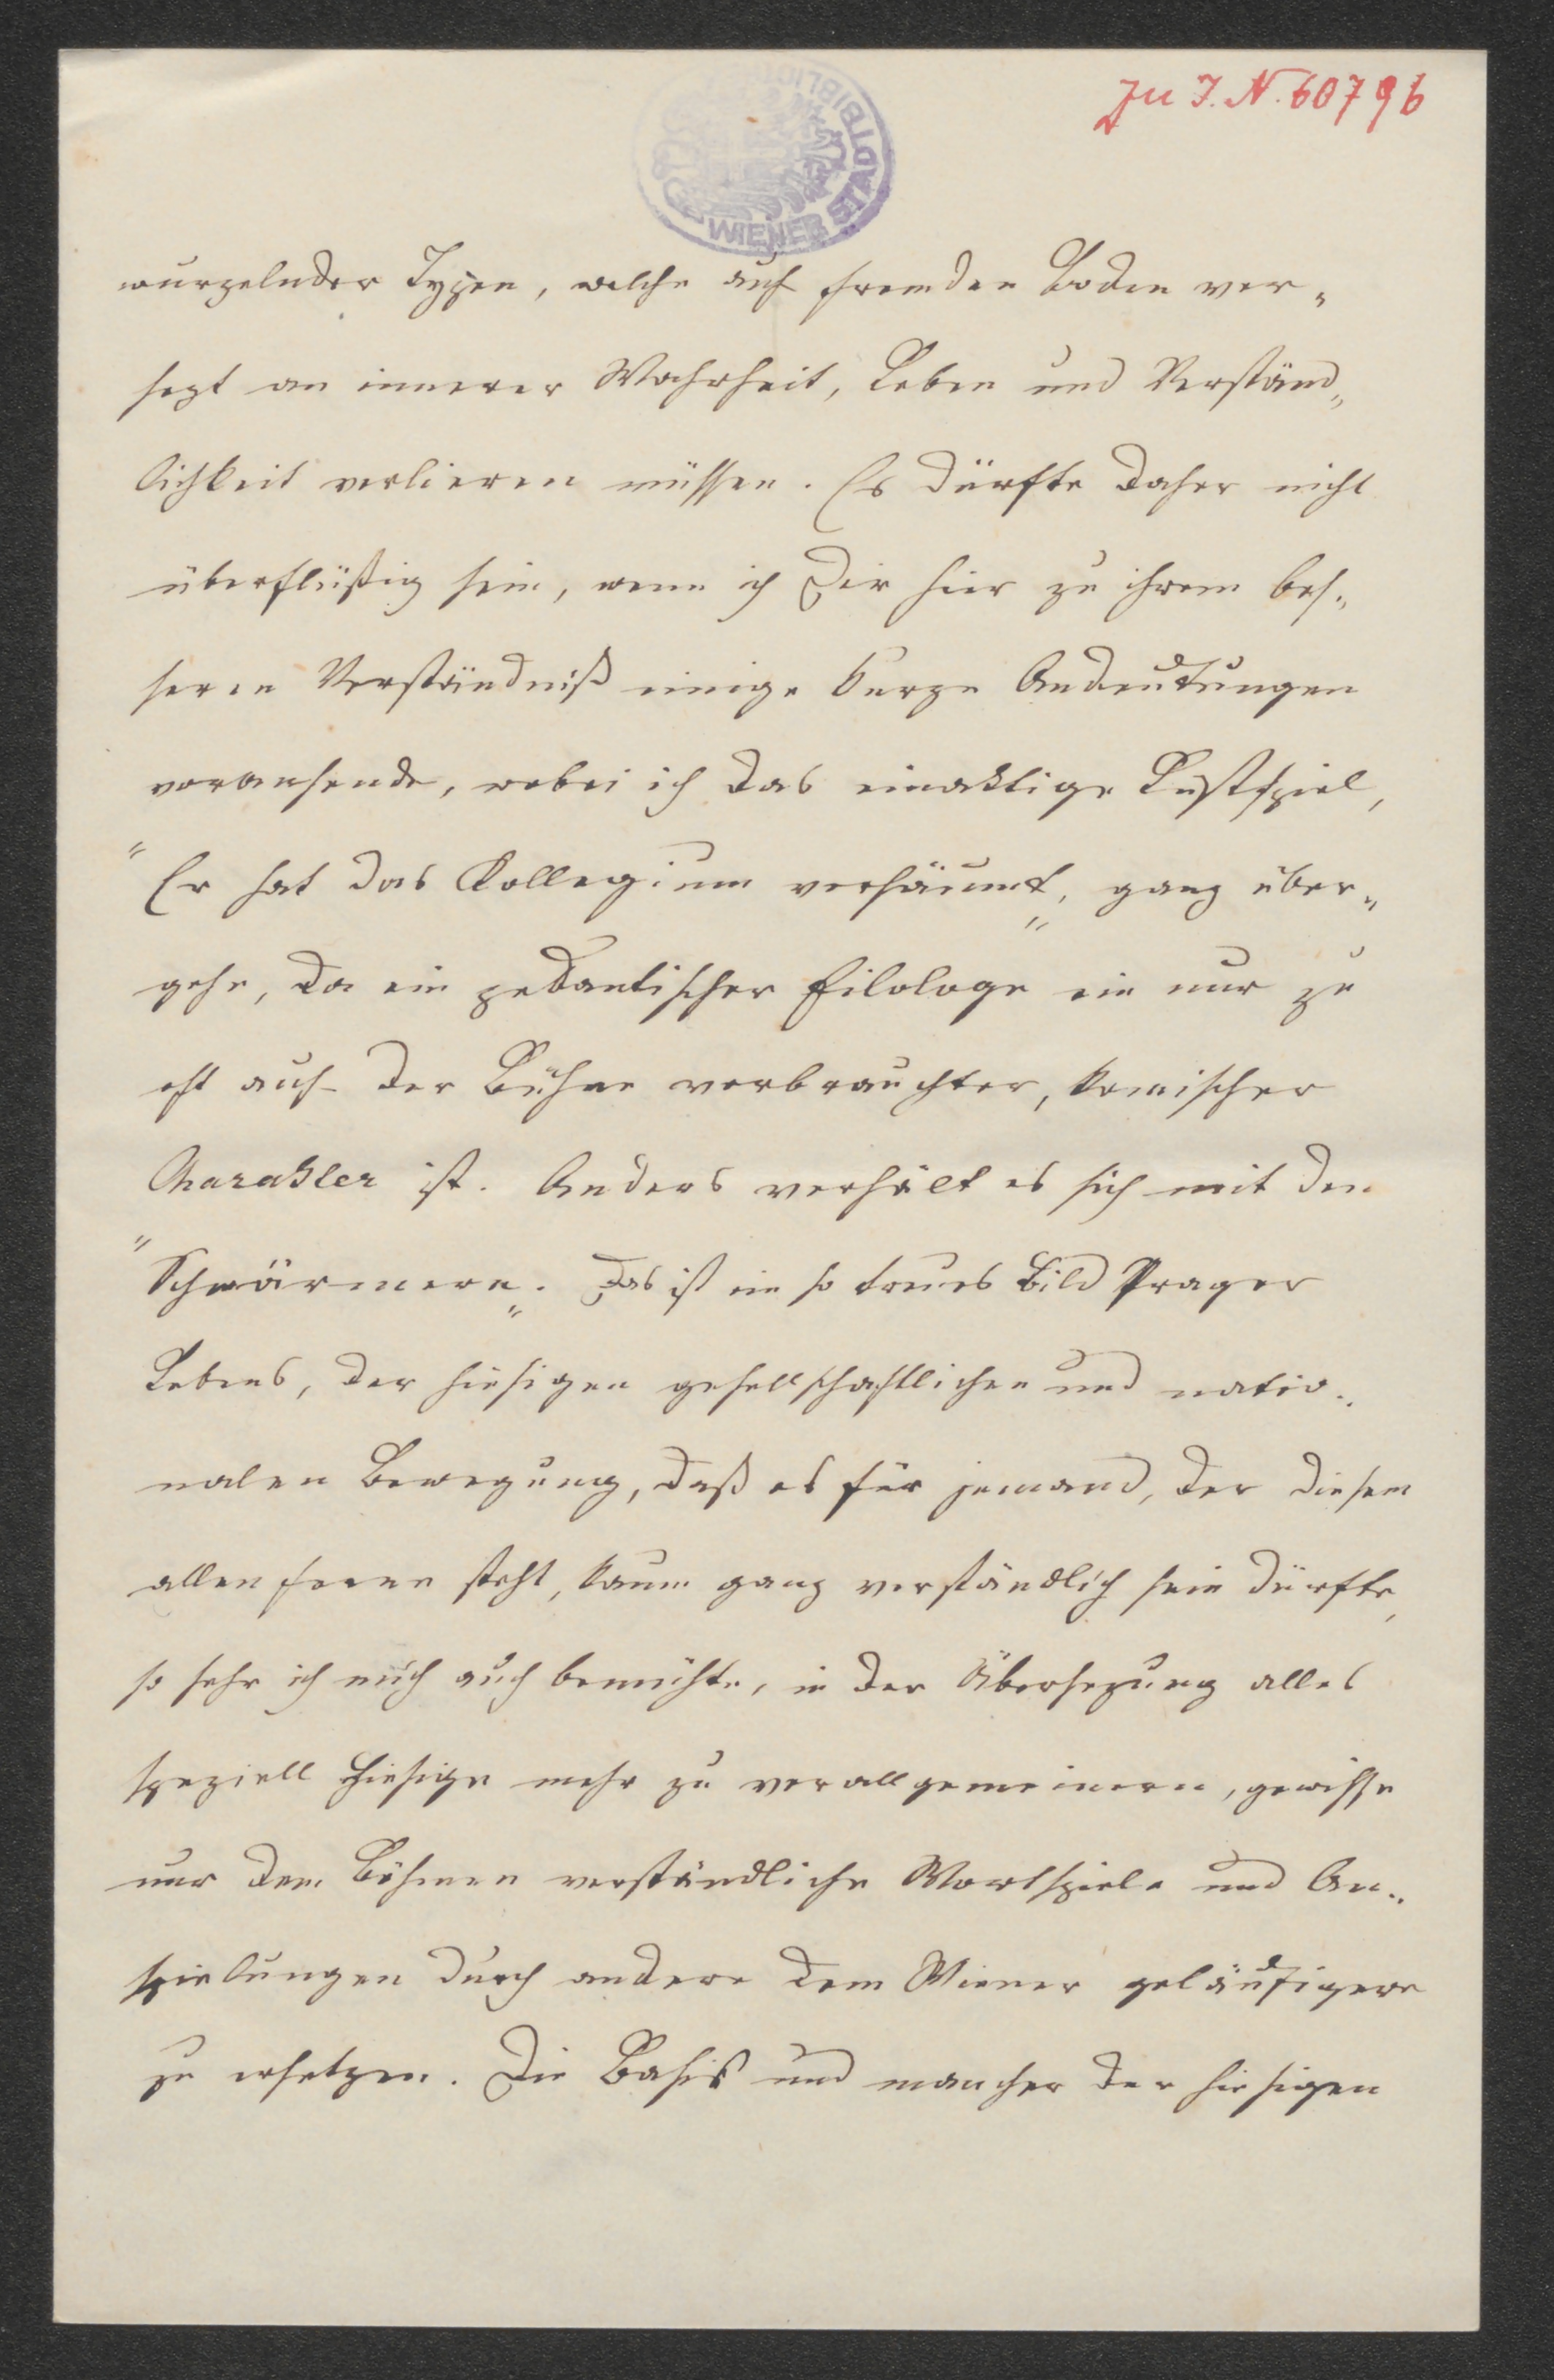 zu I. N. 60796
WIENER STADTBIBLIOTHEK
wurzelnder Typen, welche auf fremden Boden ver„
sezt an innerer Wahrheit, Leben und Verständ„
lichkeit verlieren müssen. Es dürfte daher nicht
überflüßig sein, wenn ich Dir hier zu ihrem bes„
seren Verständniß einige kurze Andeutungen
voransende, wobei ich das einaktige Lustspiel,
"Er hat das Kollegium versäumt„, ganz über„
gehe, da ein pedantischer Filologe ein nur zu
oft auf der Bühne verbrauchter, komischer
Charakter ist. Anders verhält es sich mit den
"Schwärmern„. Das ist ein so treues Bild Prager
Lebens, der hiesigen gesellschaftlichen und natio„
nalen Bewegung, daß es für jemand, der diesem
allen ferne steht, kaum ganz verständlich sein dürfte,
so sehr ich mich auch bemühte, in der Übersezung alles
speziell Hiesige mehr zu verallgemeinern, gewisse
nur dem Böhmen verständliche Wortspiele und An„
spielungen durch andere dem Wiener geläufigere
zu ersetzen. Die Basis und mancher der hiesigen